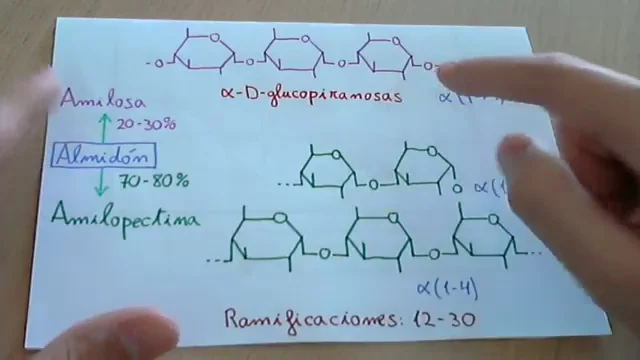 α-D-glucopiranosas
α(1
Amilosa
20-30%
Almidón
70-80%
Amilopectina
α(1
α(1-4)
Ramificaciones: 12-30